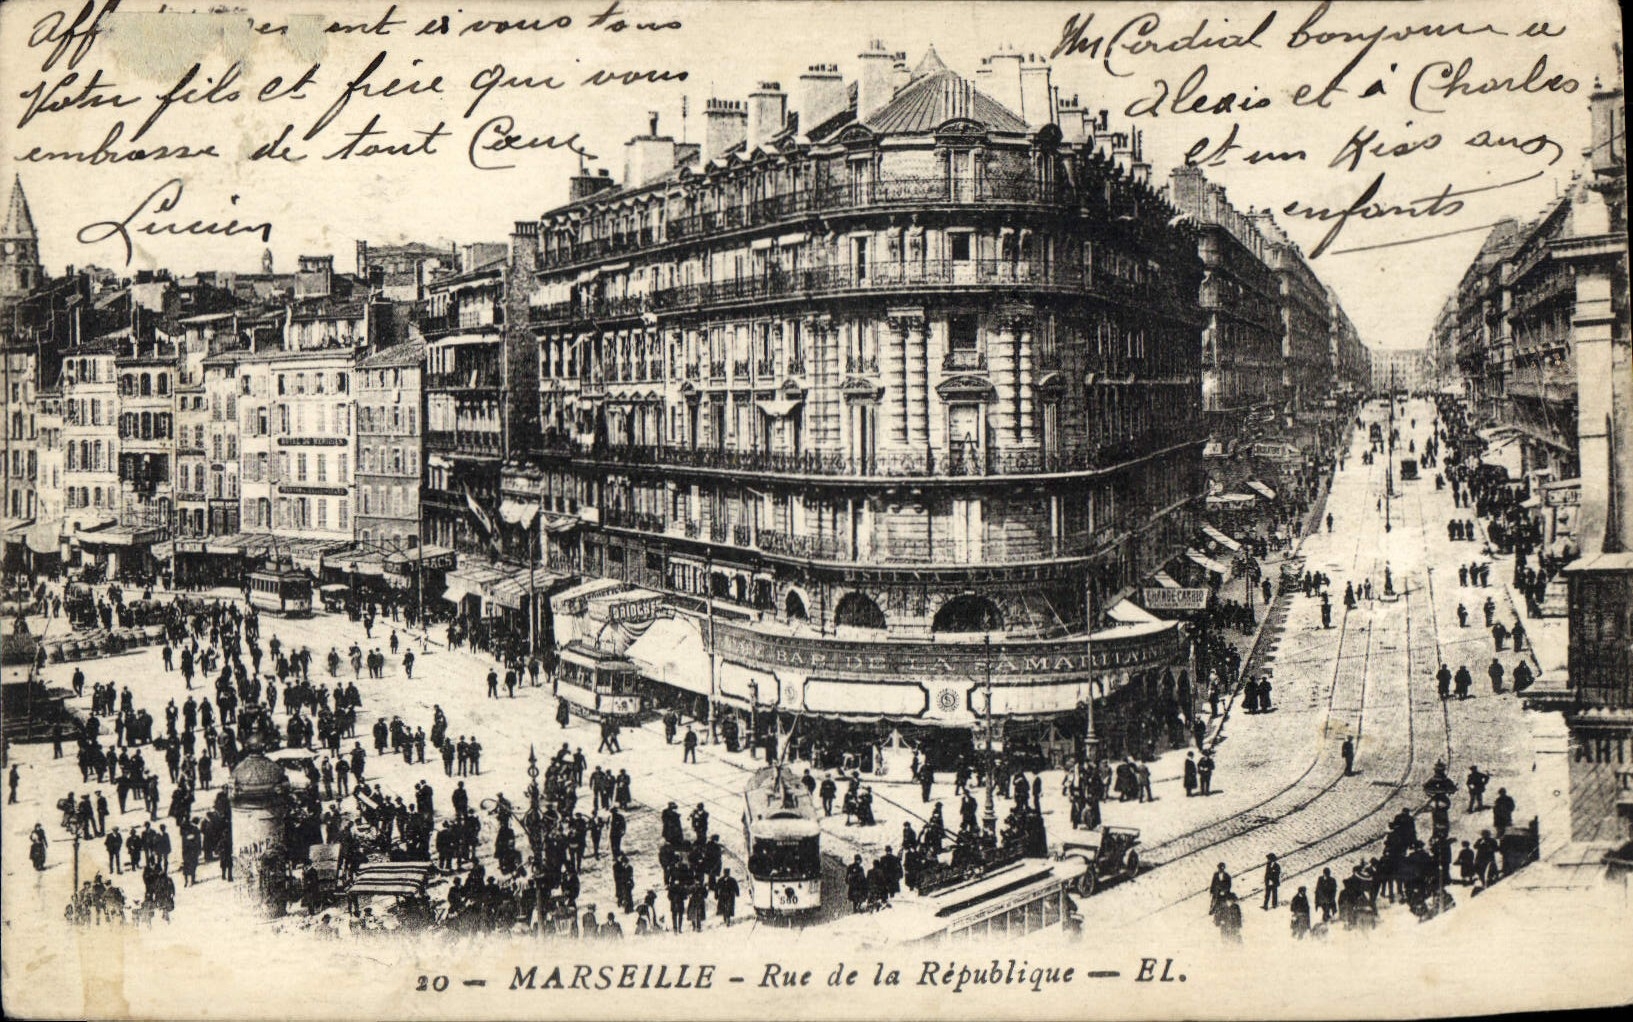 et vous tous
Votre fils et frère qui vous
embrasse de tout Cœur
Lucien
Un Cordial bonjour a
Alexis et à Charles
et un Kiss aux
enfants
HOTEL DU
BRIOCHE
BAR DE LA SAMARITAINE
CHANGE
560
20 — MARSEILLE - Rue de la République — EL.